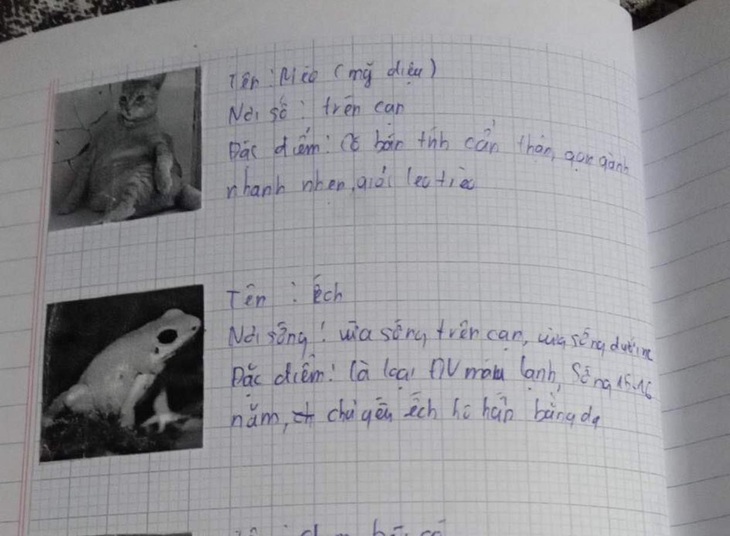 Tên : Mèo (mỹ diệu)
Nơi số : trên cạn
Đặc điểm : Có bản tính cẩn thận, gọn gành
nhanh nhẹn, giỏi leo trèo
Tên : Ếch
Nơi sống : vừa sống trên cạn, vừa sống dưới nc
Đặc điểm : là loại ĐV máu lạnh, Sống 15-16
năm, chủ yếu ếch hô hấp bằng da